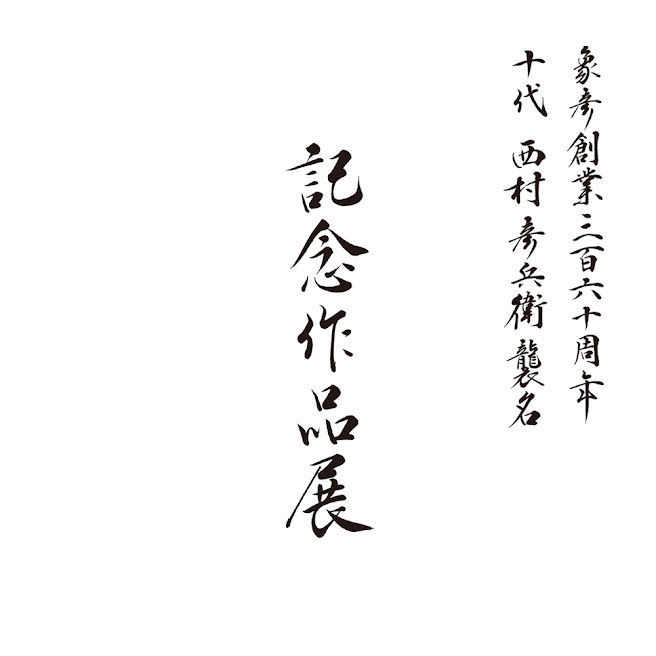 象彦創業三百六十周年
十代 西村彦兵衛 襲名
記念作品展